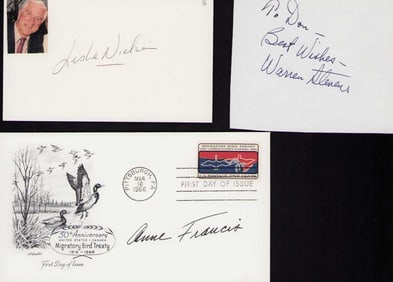 Leslie Nielsen
To Don -
Best Wishes -
Warren Stevens
PITTSBURGH, PA
MAR
16
1966
MIGRATORY BIRD TREATY
FIRST DAY OF ISSUE
50th Anniversary
UNITED STATES - CANADA
Migratory Bird Treaty
1916 - 1966
First Day of Issue
Anne Francis